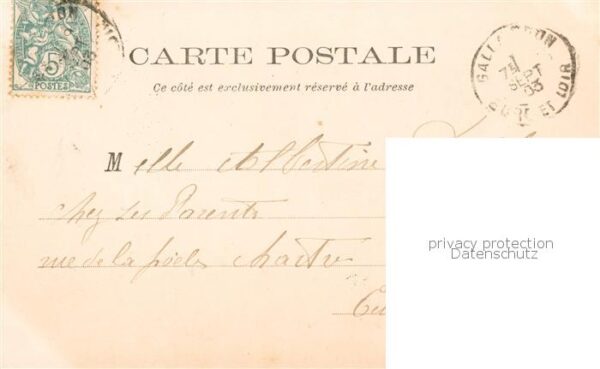 5
POSTES
CARTE POSTALE
Ce côté est exclusivement réservé à l'adresse
GALLARDON
7E
SEPT
03
EURE ET LOIR
Melle Albertine
chez ses Parents
rue de la
privacy protection
Datenschutz